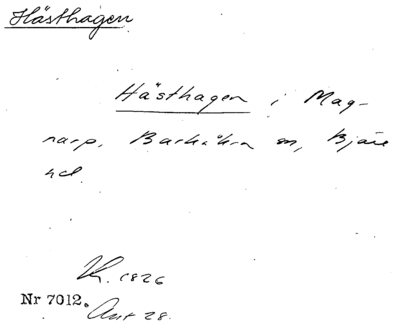 Hästhagen
Hästhagen i Mag-
narp, Barkåkra sn, Bjäre
hd
Kr. 1826
Nr 7012.
Ant 28.